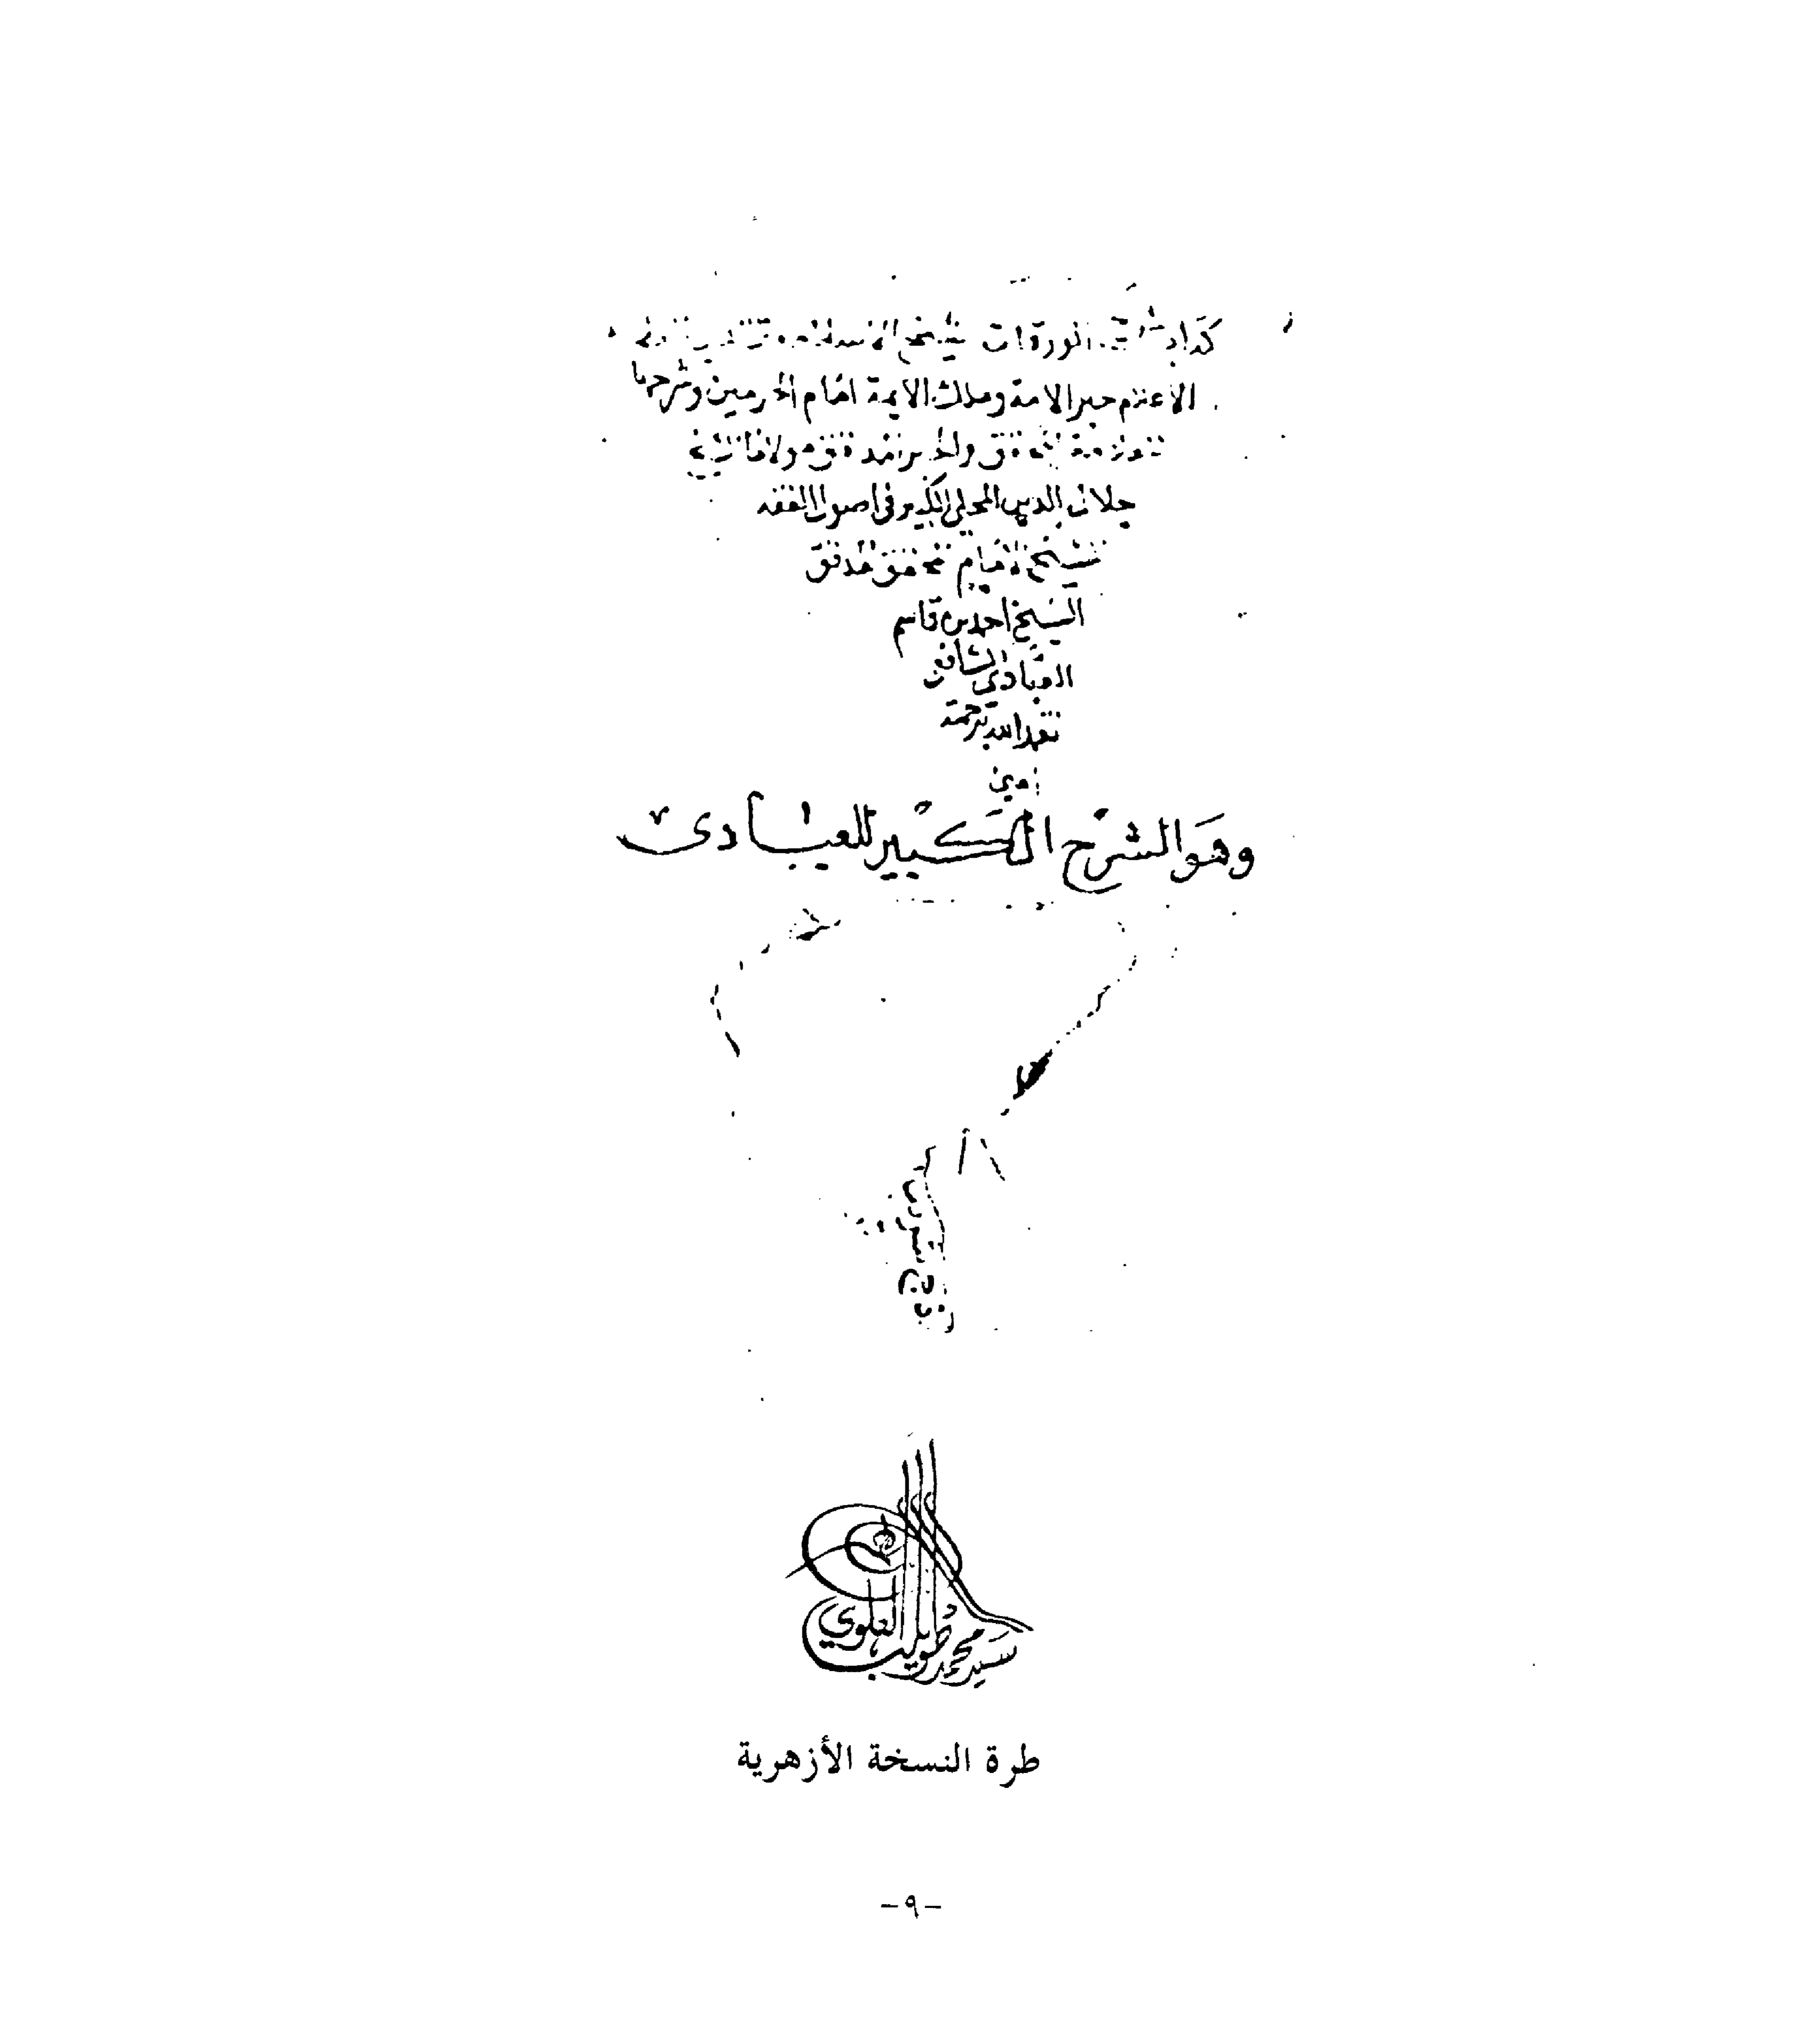 كتاب شرح الورقات لشيخ الاسلام
الاعظم حبر الامة وملك الايمة امام الحرمين وشرحها
المحقق والحبر المدقق مولانا الشيخ
جلال الدين المحلي الكبير في اصول الفقه
للشيخ الامام المحقق المدقق
الشيخ احمد بن قاسم
العبادي الشافعي
تغمده الله برحمته
امين
وهو الشرح الكبير للعبادى
سيد محمد طويلب العلوي
طرة النسخة الأزهرية
-٩-